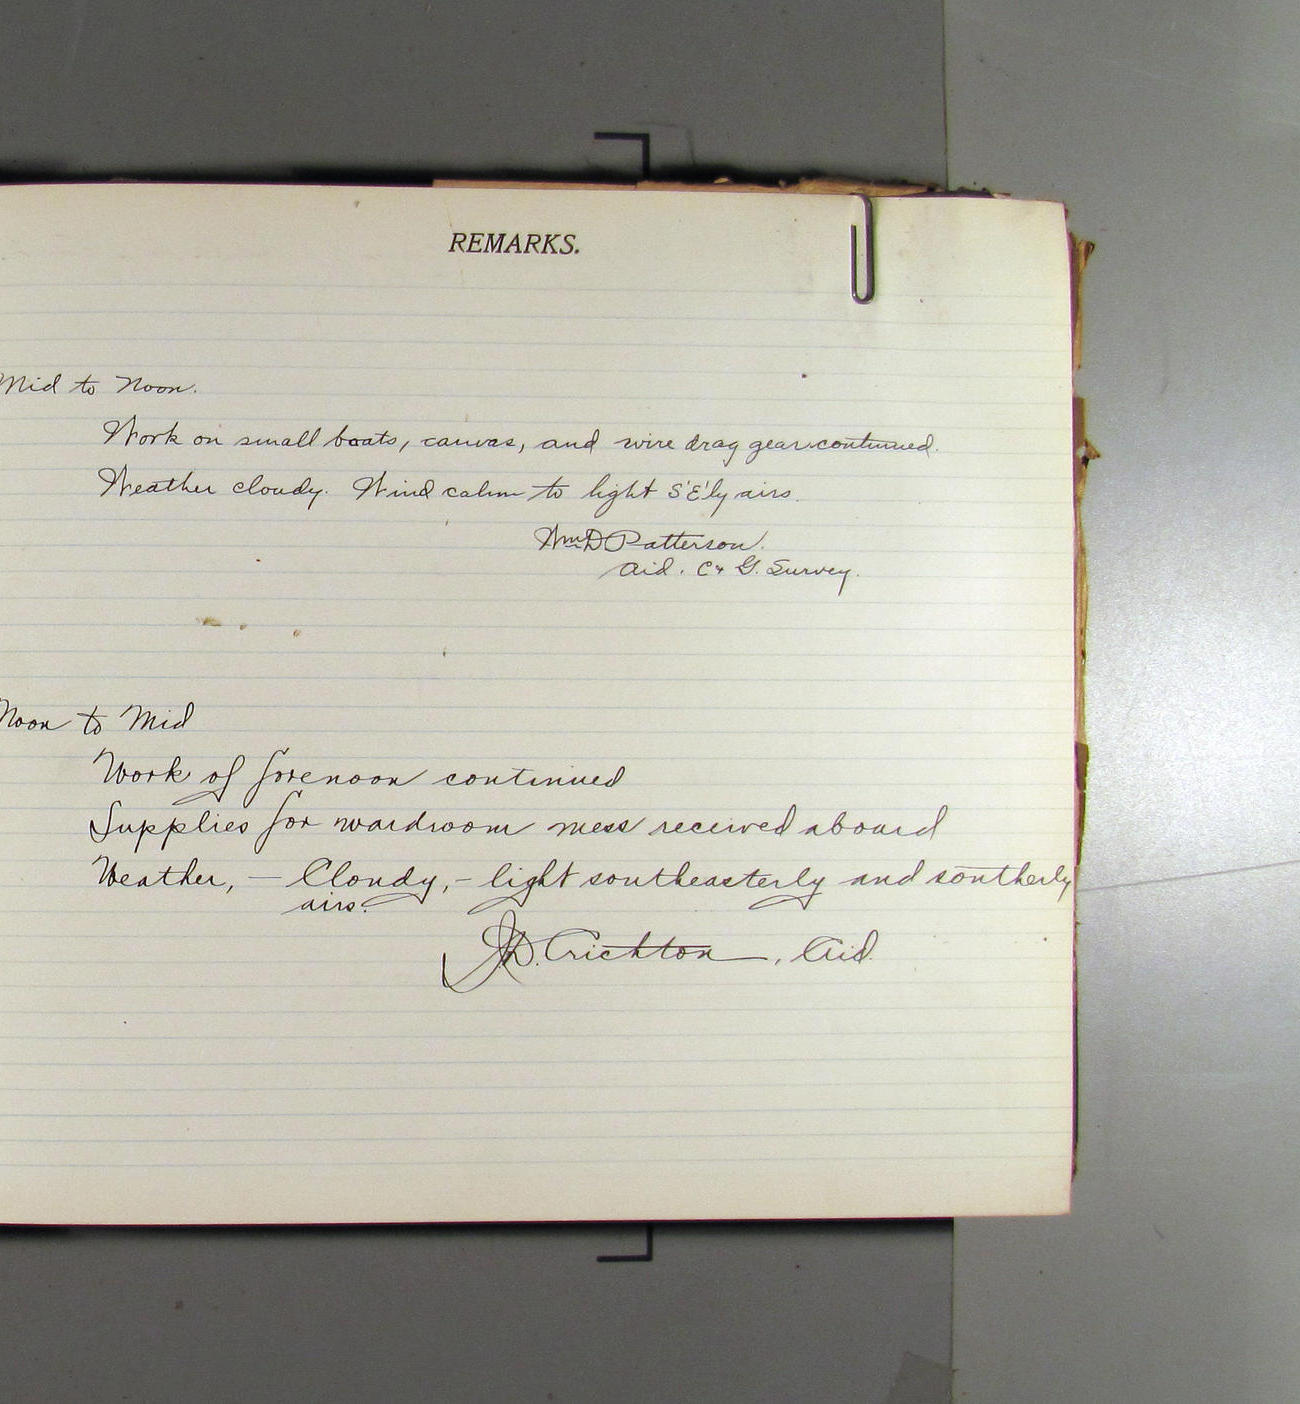 REMARKS.
Mid to Noon.
Work on small boats, canvas, and wire drag gear continued.
Weather cloudy. Wind calm to light S'E'ly airs.
Wm D Patterson.
Aid. C & G. Survey.
Noon to Mid
Work of forenoon continued
Supplies for wardroom mess received aboard
Weather, — Cloudy, — light southeasterly and southerly
airs.
J.D. Crichton, Aid.